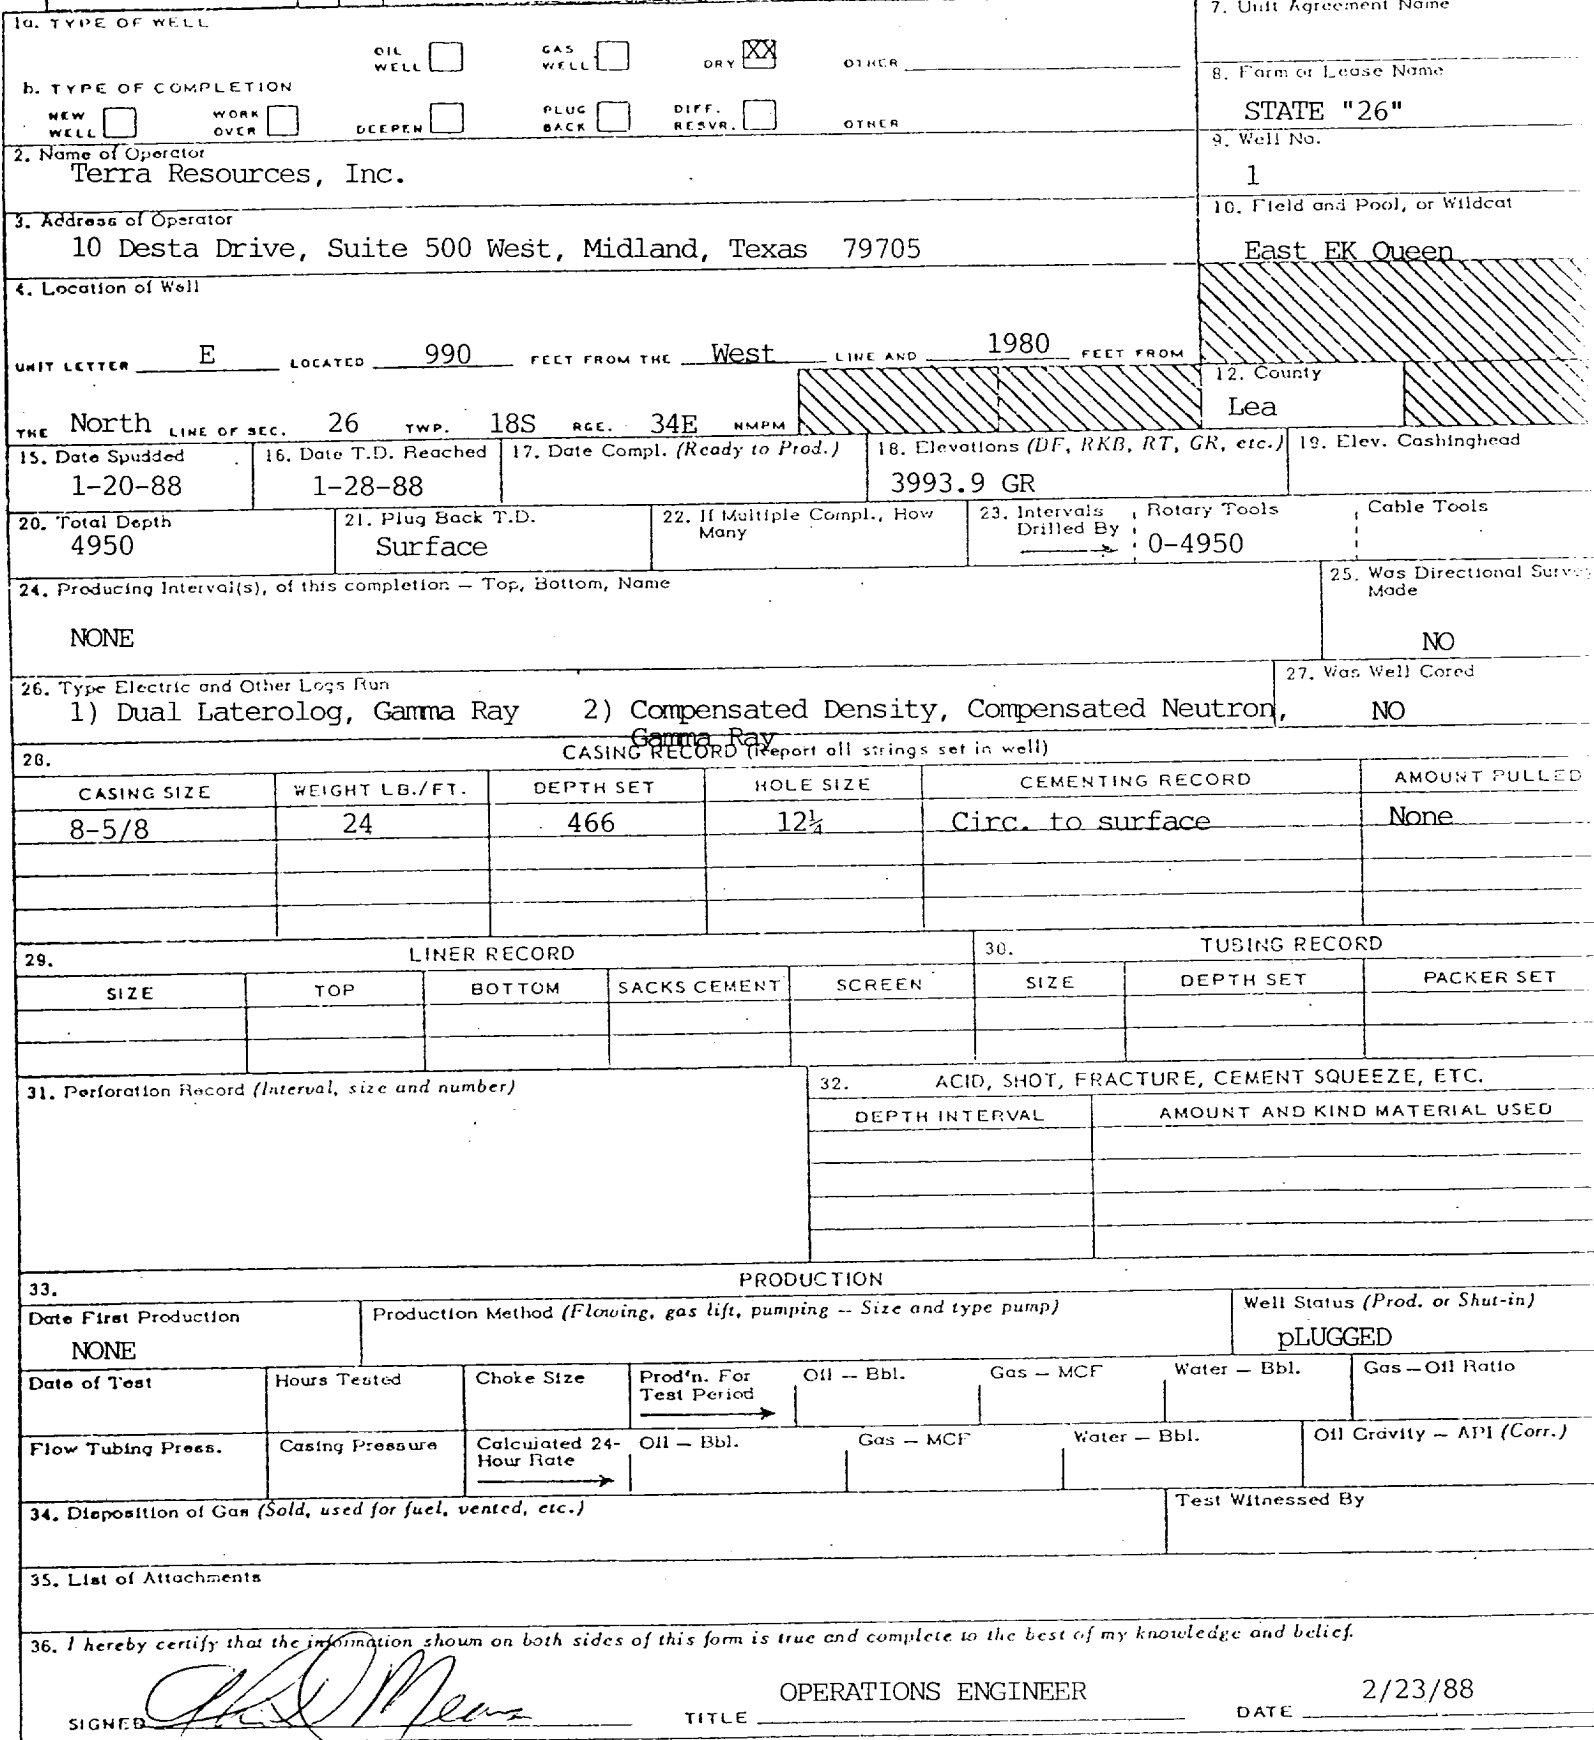 1a. TYPE OF WELL
7. Unit Agreement Name
OIL WELL GAS WELL DRY XX OTHER
b. TYPE OF COMPLETION
8. Farm or Lease Name
STATE "26"
NEW WELL WORK OVER DEEPEN PLUG BACK DIFF. RESVR. OTHER
2. Name of Operator
Terra Resources, Inc.
9. Well No.
1
3. Address of Operator
10 Desta Drive, Suite 500 West, Midland, Texas 79705
10. Field and Pool, or Wildcat
East EK Queen
4. Location of Well
UNIT LETTER E LOCATED 990 FEET FROM THE West LINE AND 1980 FEET FROM
THE North LINE OF SEC. 26 TWP. 18S RGE. 34E NMPM
12. County
Lea
15. Date Spudded
1-20-88
16. Date T.D. Reached
1-28-88
17. Date Compl. (Ready to Prod.)
18. Elevations (DF, RKB, RT, GR, etc.)
3993.9 GR
19. Elev. Cashinghead
20. Total Depth
4950
21. Plug Back T.D.
Surface
22. If Multiple Compl., How
Many
23. Intervals
Drilled By
Rotary Tools
0-4950
Cable Tools
24. Producing Interval(s), of this completion — Top, Bottom, Name
NONE
25. Was Directional
Made
NO
26. Type Electric and Other Logs Run
1) Dual Laterolog, Gamma Ray 2) Compensated Density, Compensated Neutron,
Gamma Ray
27. Was Well Cored
NO
28. CASING RECORD (Report all strings set in well)
CASING SIZE WEIGHT LB./FT. DEPTH SET HOLE SIZE CEMENTING RECORD AMOUNT PULLED
8-5/8 24 466 12¼ Circ. to surface None
29. LINER RECORD
30. TUBING RECORD
SIZE TOP BOTTOM SACKS CEMENT SCREEN SIZE DEPTH SET PACKER SET
31. Perforation Record (Interval, size and number)
32. ACID, SHOT, FRACTURE, CEMENT SQUEEZE, ETC.
DEPTH INTERVAL AMOUNT AND KIND MATERIAL USED
33. PRODUCTION
Date First Production
NONE
Production Method (Flowing, gas lift, pumping — Size and type pump)
Well Status (Prod. or Shut-in)
pLUGGED
Date of Test
Hours Tested
Choke Size
Prod'n. For
Test Period
Oil — Bbl.
Gas — MCF
Water — Bbl.
Gas — Oil Ratio
Flow Tubing Press.
Casing Pressure
Calculated 24-
Hour Rate
Oil — Bbl.
Gas — MCF
Water — Bbl.
Oil Gravity — API (Corr.)
34. Disposition of Gas (Sold, used for fuel, vented, etc.)
Test Witnessed By
35. List of Attachments
36. I hereby certify that the information shown on both sides of this form is true and complete to the best of my knowledge and belief.
SIGNED TITLE OPERATIONS ENGINEER DATE 2/23/88